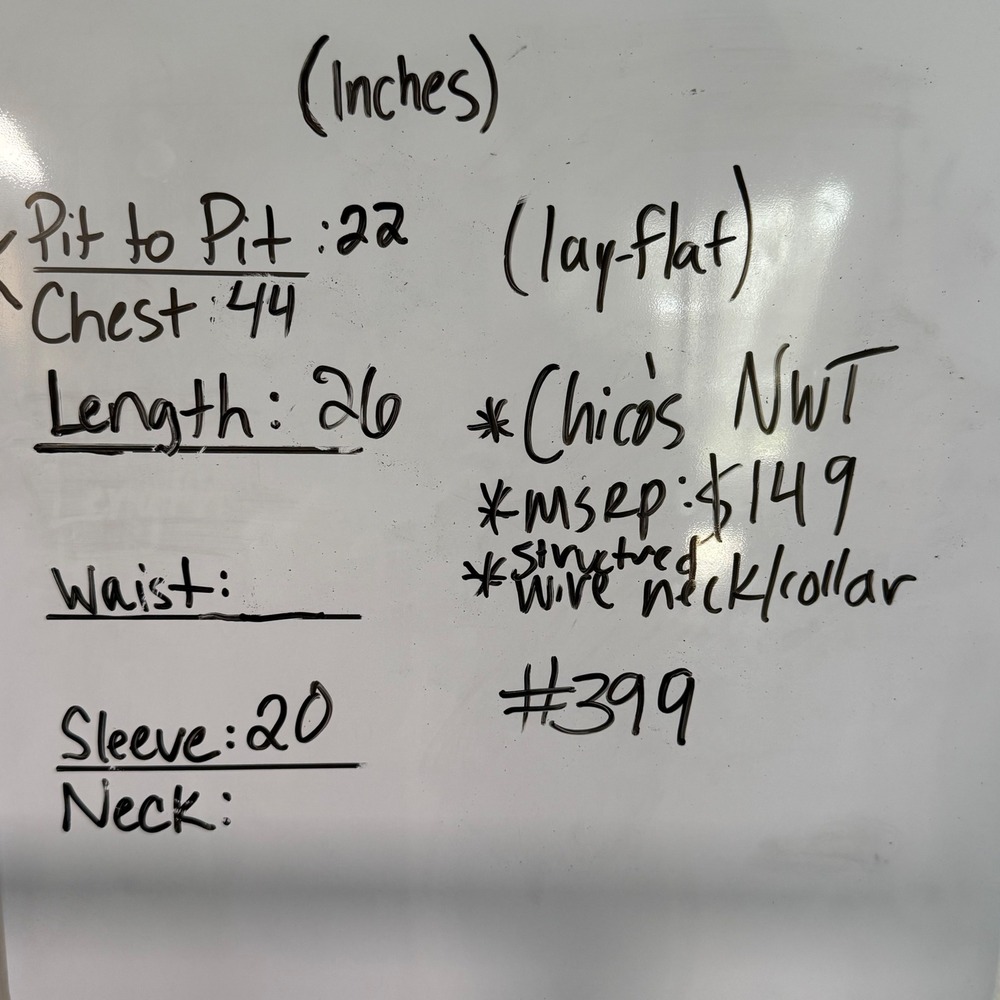 (Inches)
Pit to Pit: 22
(lay-flat)
Chest: 44
Length: 26
*Chico's NWT
*MSRP: $149
*structured
wire neck/collar
Waist:
#399
Sleeve: 20
Neck: